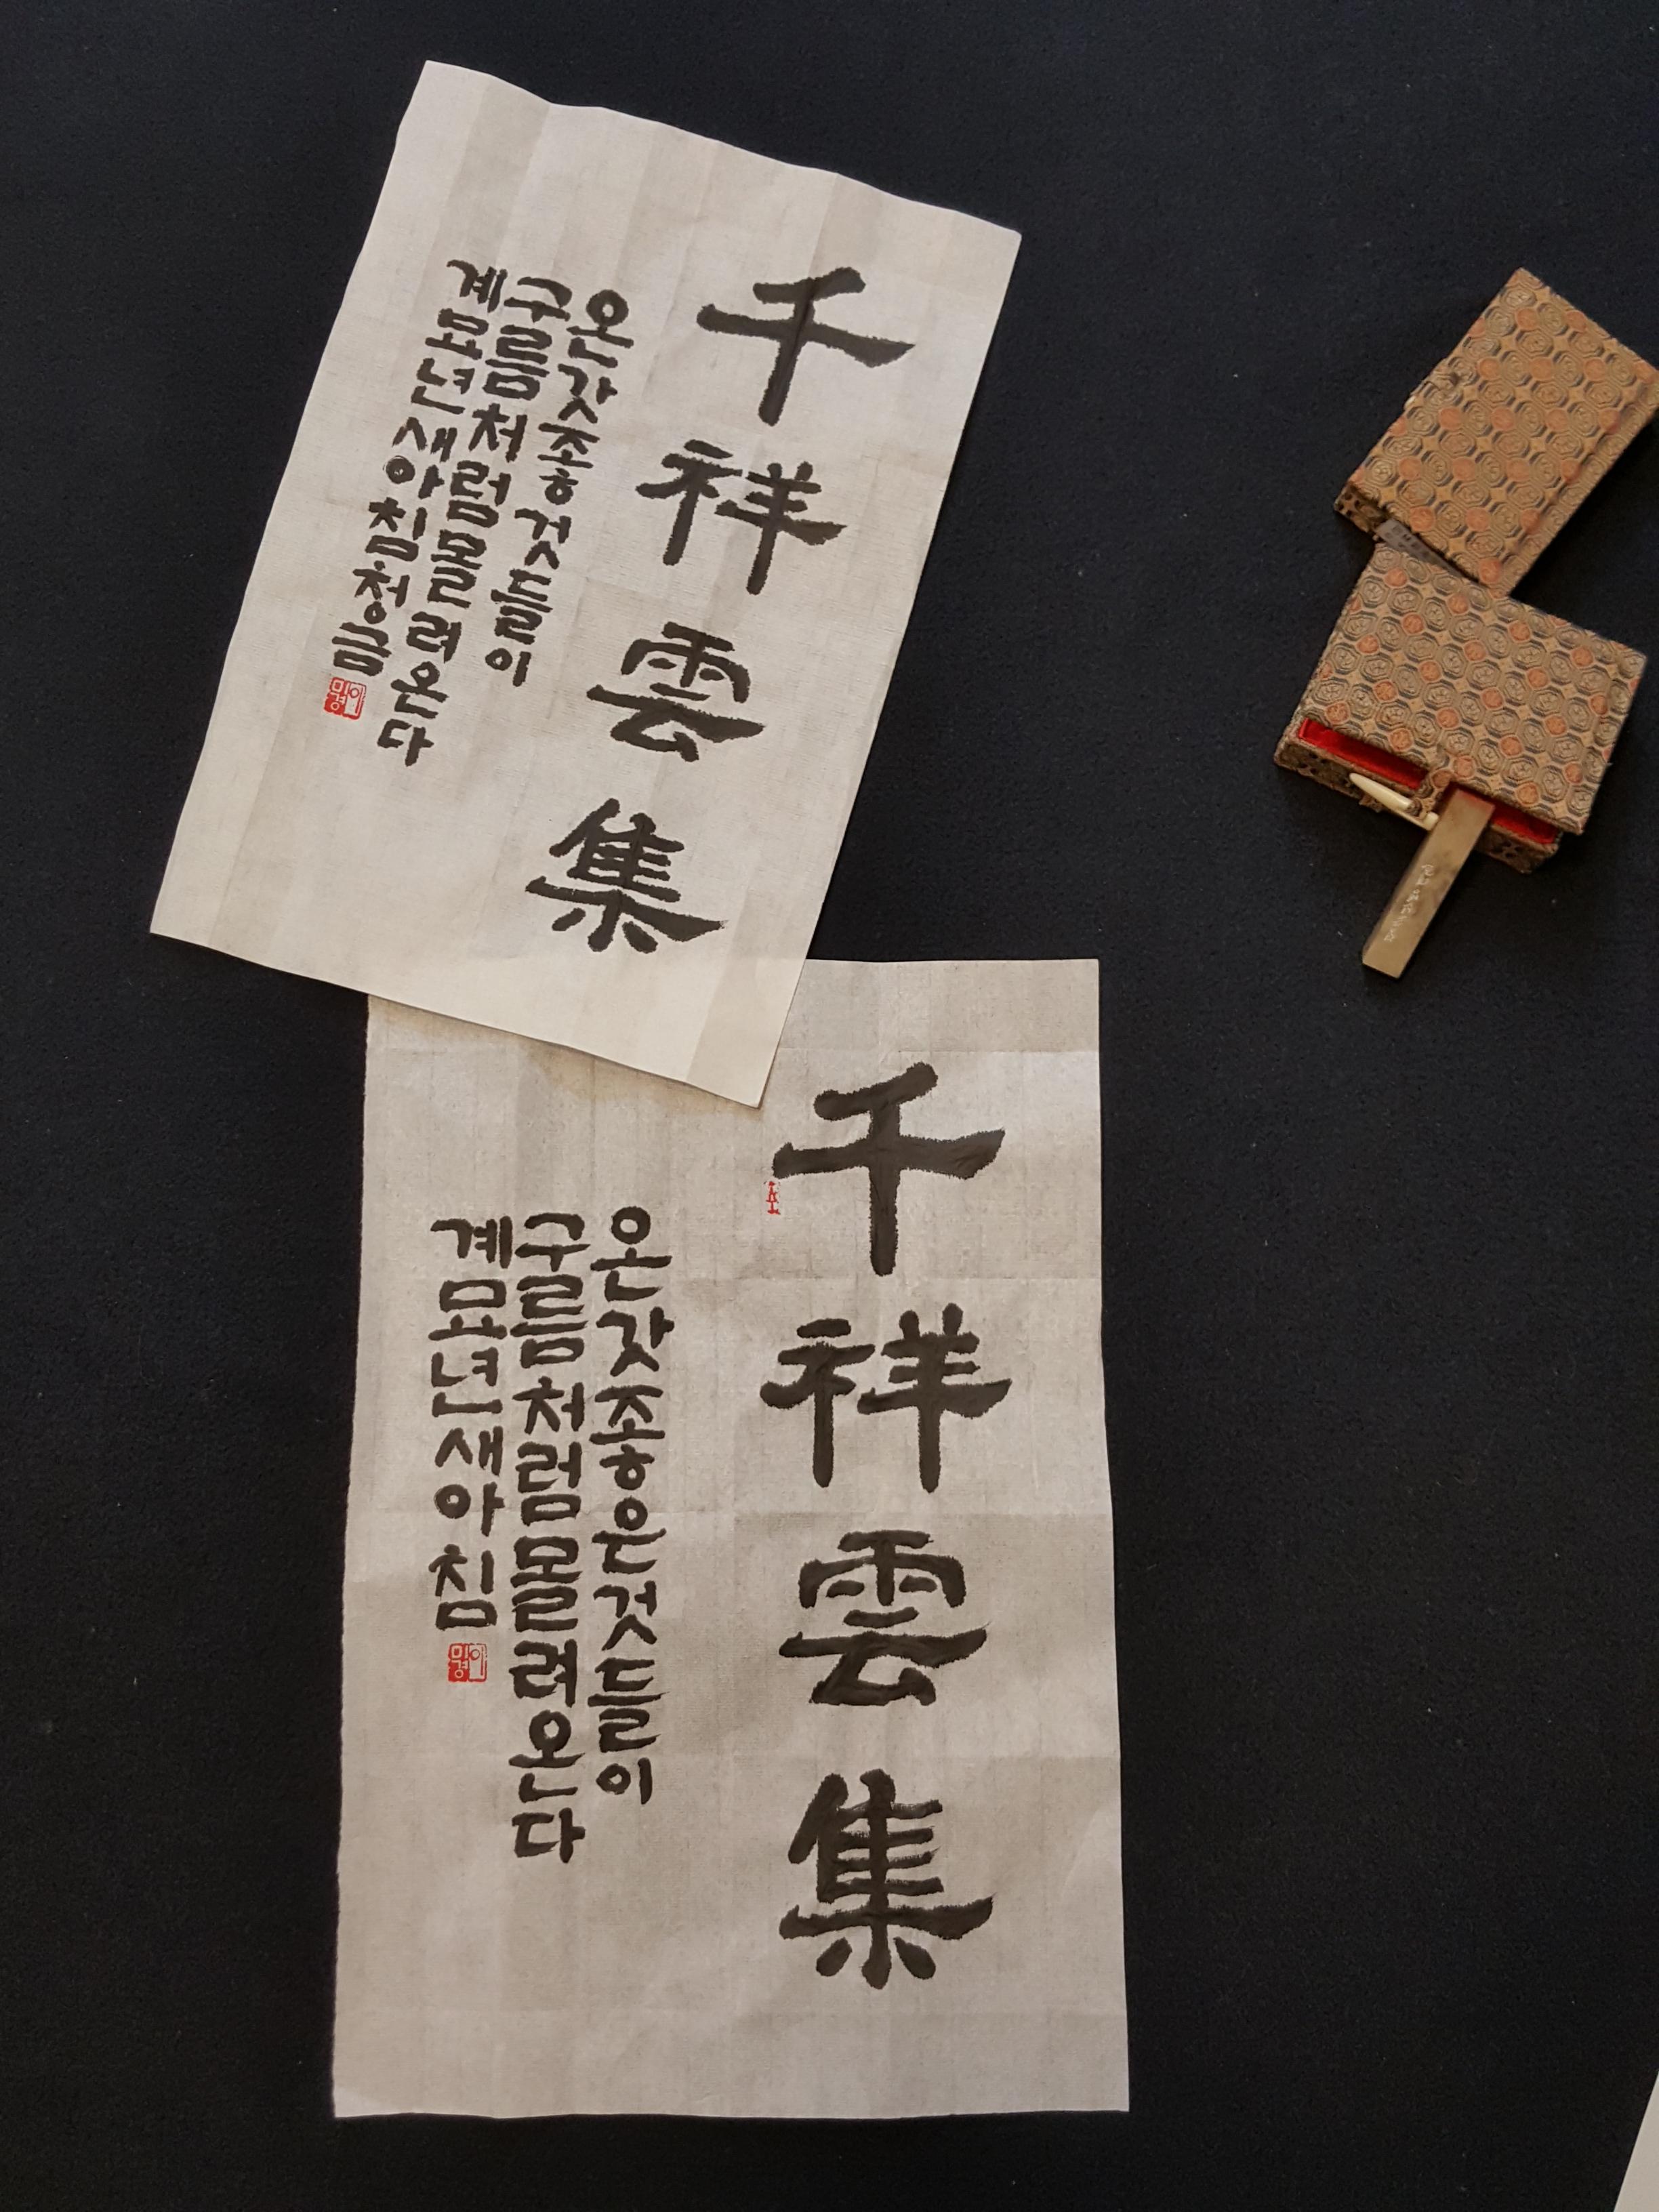 千祥雲集
온갓좋것들이
구름처럼몰려온다
계묘년새아침청음
이미경
千祥雲集
온갓좋은것들이
구름처럼몰려온다
계묘년새아침
이미경